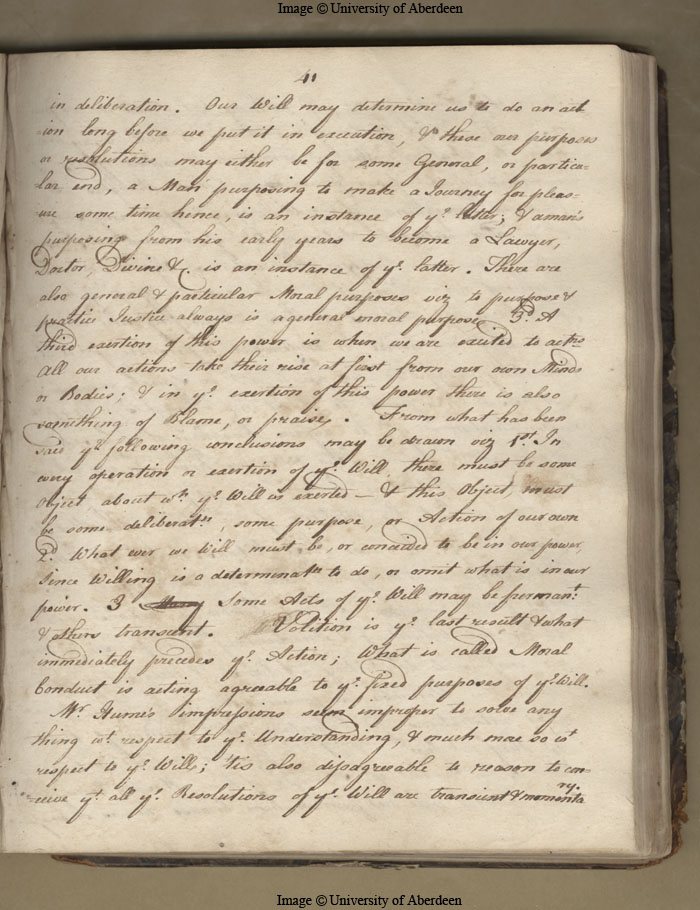 Image © University of Aberdeen
41
in deliberation. Our Will may determine us to do an act
ion long before we put it in execution, & these our purposes
or resolutions may either be for some General, or particu-
lar end, a Man purposing to make a Journey for pleas-
ure some time hence, is an instance of yᵉ latter; & a man's
purposing from his early years to become a Lawyer,
Doctor, Divine &c. is an instance of yᵉ latter. There are
also general & particular Moral purposes viz to purpose &
practice Justice always is a general moral purpose. 3ᵈ. A
third exertion of this power is when we are excited to act
All our actions take their rise at first from our own Minds
or Bodies; & in yᵉ exertion of this power there is also
something of Blame, or praise. From what has been
said yᵉ following conclusions may be drawn viz 1ˢᵗ. In
every operation or exertion of yᵉ Will there must be some
Object about wᶜʰ yᵉ Will is exerted — & this Object, must
be some deliberatⁿ, some purpose, or Action of our own
2ᵈ. What ever we Will must be, or conceived to be in our power,
since Willing is a determinatⁿ to do, or omit what is in our
power. 3 Some Acts of yᵉ Will may be permanᵗ.
& others transient. Volition is yᵉ last result & what
immediately precedes yᵉ Action; What is called Moral
Conduct is acting agreable to yᵉ fixed purposes of yᵉ Will.
Mʳ. Hume's impressions seem improper to solve any
thing wᵗ. respect to yᵉ Understanding, & much more so wᵗ
respect to yᵉ Will; 'tis also disagreable to reason to con-
ceive yᵗ all yᵉ Resolutions of yᵉ Will are transient & momenta
ry.
Image © University of Aberdeen